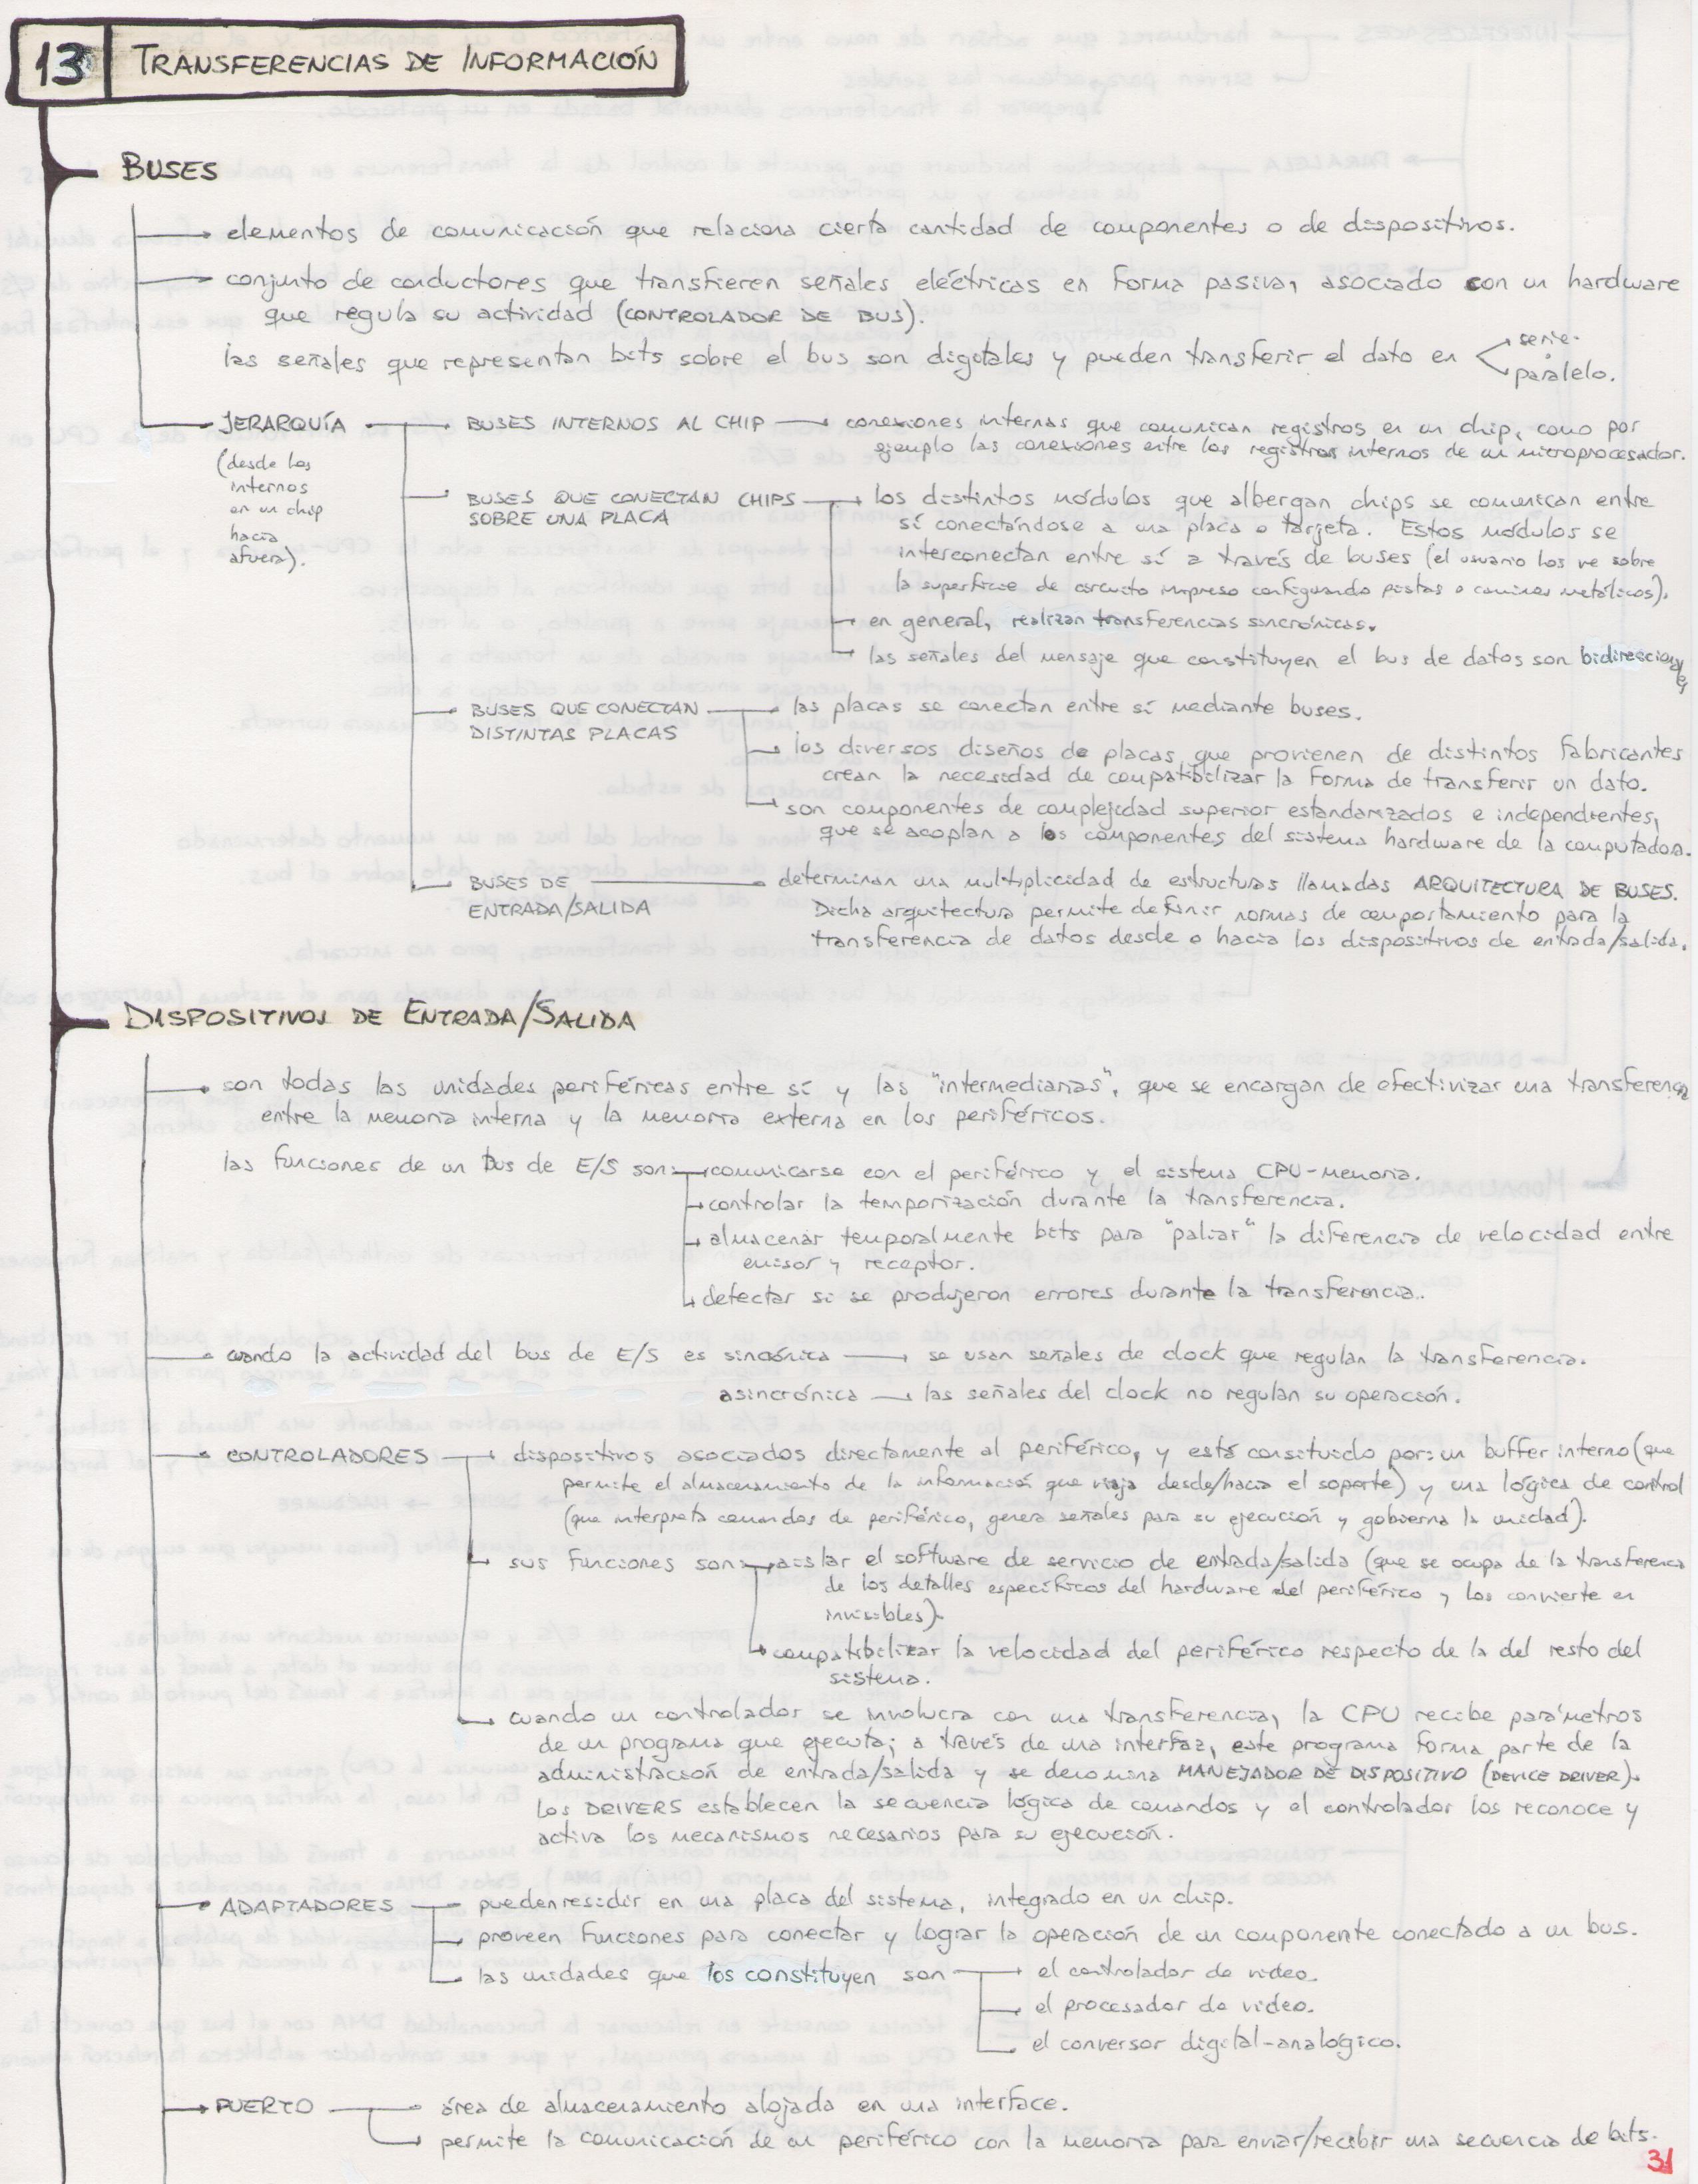 13 TRANSFERENCIAS DE INFORMACIÓN
BUSES
elementos de comunicación que relaciona cierta cantidad de componentes o de dispositivos.
conjunto de conductores que transfieren señales eléctricas en forma pasiva, asociado con un hardware
que regula su actividad (CONTROLADOR DE BUS).
las señales que representan bits sobre el bus son digitales y pueden transferir el dato en
serie.
paralelo.
JERARQUÍA
(desde los
internos
en un chip
hacia
afuera).
BUSES INTERNOS AL CHIP
conexiones internas que comunican registros en un chip, como por
ejemplo las conexiones entre los registros internos de un microprocesador.
BUSES QUE CONECTAN CHIPS
SOBRE UNA PLACA
los distintos módulos que albergan chips se comunican entre
sí conectándose a una placa o tarjeta. Estos módulos se
interconectan entre sí a través de buses (el usuario los ve sobre
la superficie de circuito impreso configurando pistas o caminos metálicos).
en general, realizan transferencias sincrónicas.
las señales del mensaje que constituyen el bus de datos son bidireccionales
BUSES QUE CONECTAN
DISTINTAS PLACAS
las placas se conectan entre sí mediante buses.
los diversos diseños de placas que provienen de distintos fabricantes
crean la necesidad de compatibilizar la forma de transferir un dato.
son componentes de complejidad superior estandarizados e independientes,
que se acoplan a los componentes del sistema hardware de la computadora.
BUSES DE
ENTRADA/SALIDA
determinan una multiplicidad de estructuras llamadas ARQUITECTURA DE BUSES.
Dicha arquitectura permite definir normas de comportamiento para la
transferencia de datos desde o hacia los dispositivos de entrada/salida.
DISPOSITIVOS DE ENTRADA/SALIDA
son todas las unidades periféricas entre sí y las "intermediarias", que se encargan de efectivizar una transferencia
entre la memoria interna y la memoria externa en los periféricos.
las funciones de un bus de E/S son:
comunicarse con el periférico y el sistema CPU-memoria.
controlar la temporización durante la transferencia.
almacenar temporalmente bits para "paliar" la diferencia de velocidad entre
emisor y receptor.
detectar si se produjeron errores durante la transferencia.
cuando la actividad del bus de E/S es sincrónica
se usan señales de clock que regulan la transferencia.
asincrónica
las señales del clock no regulan su operación.
CONTROLADORES
dispositivos asociados directamente al periférico, y está consituido por: un buffer interno (que
permite el almacenamiento de la información que viaja desde/hacia el soporte) y una lógica de control
(que interpreta comandos de periférico, genera señales para su ejecución y gobierna la unidad).
sus funciones son:
aislar el software de servicio de entrada/salida (que se ocupa de la transferencia
de los detalles específicos del hardware del periférico y los convierte en
invisibles).
compatibilizar la velocidad del periférico respecto de la del resto del
sistema.
cuando un controlador se involucra con una transferencia, la CPU recibe parámetros
de un programa que ejecuta; a través de una interfaz, este programa forma parte de la
administración de entrada/salida y se denomina MANEJADOR DE DISPOSITIVO (DEVICE DRIVER).
Los DRIVERS establecen la secuencia lógica de comandos y el controlador los reconoce y
activa los mecanismos necesarios para su ejecución.
ADAPTADORES
pueden residir en una placa del sistema, integrado en un chip.
proveen funciones para conectar y lograr la operación de un componente conectado a un bus.
las unidades que los constituyen son
el controlador de video.
el procesador de video.
el conversor digital-analógico.
PUERTO
área de almacenamiento alojada en una interface.
permite la comunicación de un periférico con la memoria para enviar/recibir una secuencia de bits.
31